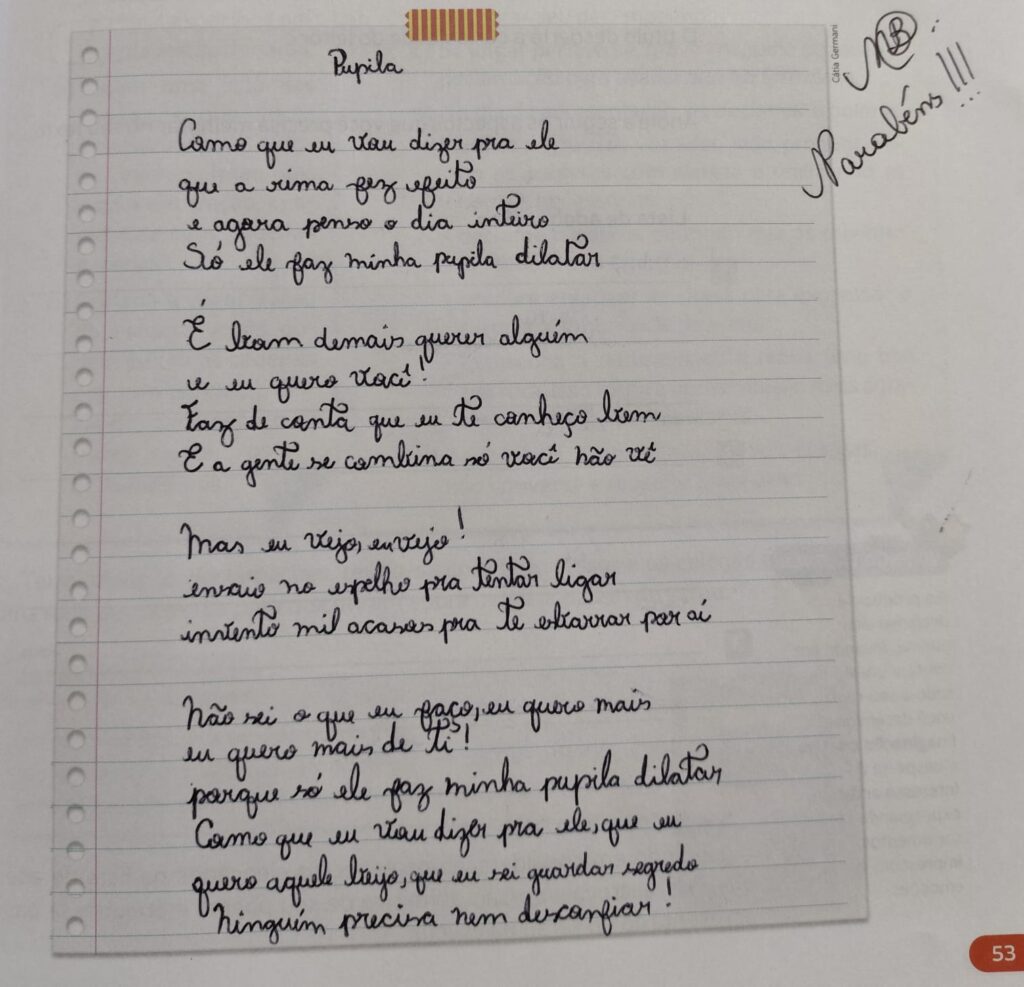 Pupila
Como que eu vou dizer pra ele
que a rima fez efeito
e agora penso o dia inteiro
Só ele faz minha pupila dilatar
É bom demais querer alguém
e eu quero você!
Faz de conta que eu te conheço bem
E a gente se combina só você não vê
Mas eu vejo, eu vejo!
ensaio no espelho pra tentar ligar
invento mil acasos pra te esbarrar por aí
Não sei o que eu faço, eu quero mais
eu quero mais de ti!
porque só ele faz minha pupila dilatar
Como que eu vou dizer pra ele, que eu
quero aquele beijo, que eu sei guardar segredo
Ninguém precisa nem desconfiar!
Cátia Germani
Parabéns!!!
53